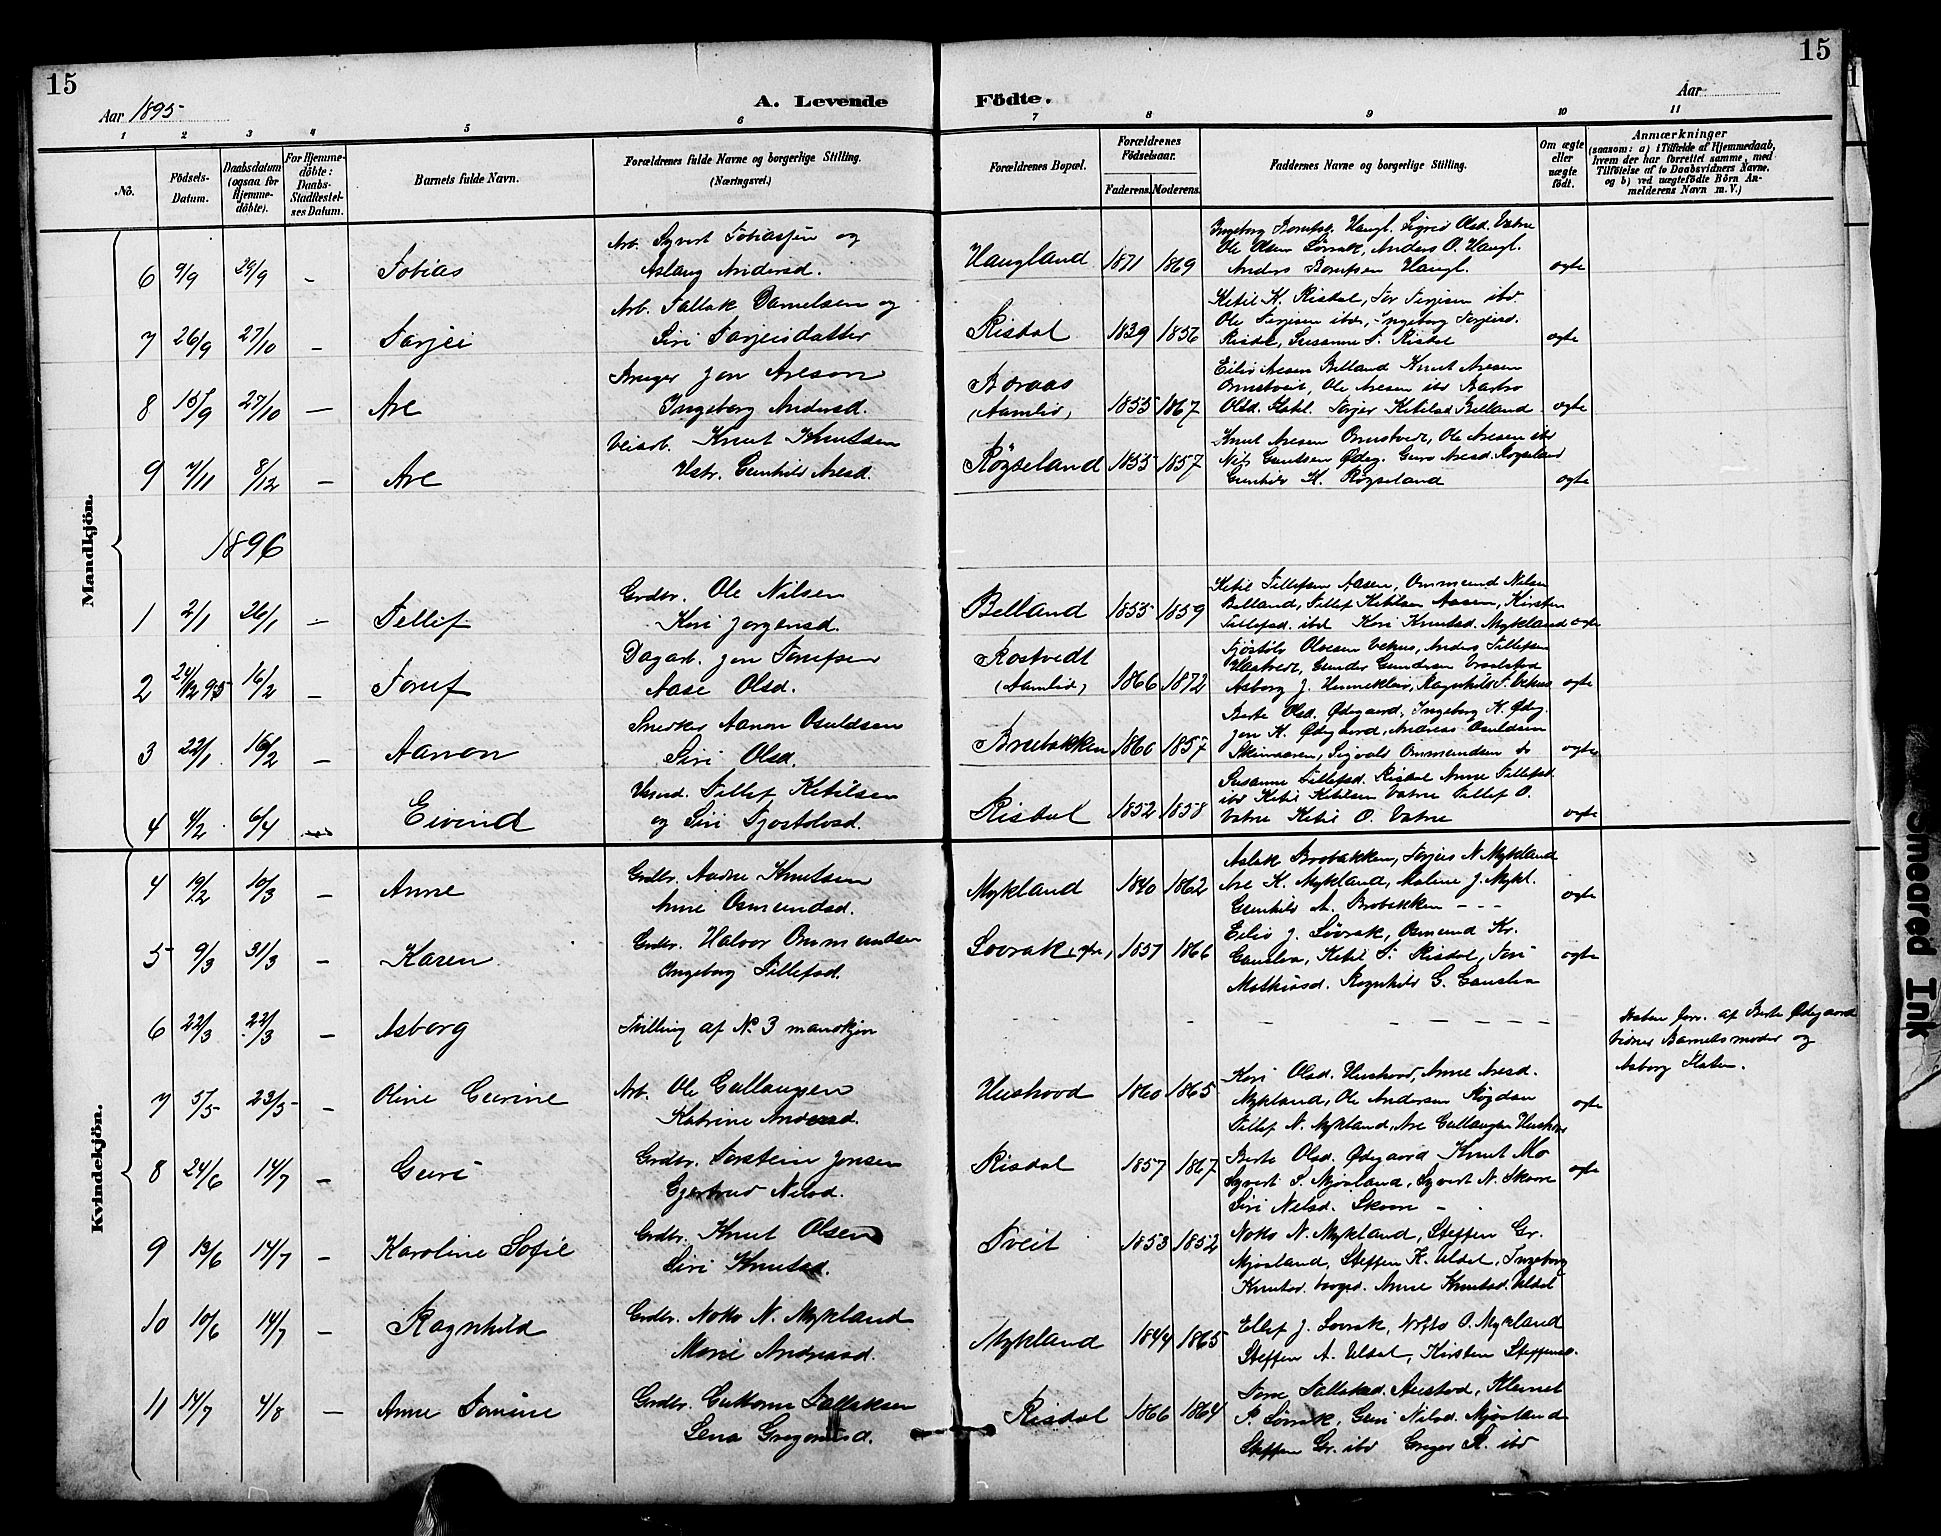 15
15
Aar 1895
A. Levende Födte.
Aar
1 2 3 4 5 6 7 8 9 10 11
No.
Födsels-Datum.
Daabsdatum (ogsaa for Hjemme-döbte).
For Hjemme-döbte: Daabs-Stadfæstel-ses Datum.
Barnets fulde Navn.
Forældrenes fulde Navne og borgerlige Stilling. (Næringsvei.)
Forældrenes Bopæl.
Forældrenes Födselsaar.
Faderens. Moderens.
Faddernes Navne og borgerlige Stilling.
Om ægte eller uægte födt.
Anmærkninger
(saasom: a) i Tilfælde af Hjemmedaab,
hvem der har forrettet samme, med
Tilföielse af to Daabsvidners Navne,
og b) ved uægtefödte Börn An-
melderens Navn m. V.)
Mandkjön.
6 9/9 29/9 – Tobias
Arb. Syvert Tobiassen og
Aslaug Andersd.
Haugland 1871 1869
Ingeborg Haugl. Sigrid Olsd. Vatne
Ole Olsen Lövrak, Anders O. Haugl.
Anders Haugl.
ægte
7 26/9 27/10 – Torjei
Arb. Tallak Danielsen og
Siri Torjeisdatter
Risdal 1839 1856
Ketil K. Risdal, Tor Terjesen ibd
Ole Terjesen ibd, Ingeborg Torjeisd.
Risdal, Susanne T. Risdal
ægte
8 15/9 27/10 – Are
Bruger Jon Areson
Ingeborg Andersd.
Boraas
(Aamlid) 1855 1867
Eiliv Aresen Belland Knut Aresen
Ormstveit, Ole Aresen ibd Barbro
Olsd. Ketilsd. Belland
ægte
9 7/11 8/12 – Are
Veiarb. Knut Knutsen
Hstr. Gunhild Aresd.
Röyseland 1855 1857
Knut Aresen Ormstvedt, Ole Aresen ibd
Nils Gundsen Ødeg. Guro Aresd. Royseland
Gunhild K. Röyseland
ægte
1896
1 2/1 26/1 – Tellef
Grdbr. Ole Nilsen
Kari Jorgensd.
Belland 1855 1859
Ketil Tellefsen Aasen, Ommund Nilsen
Belland, Tellef Ketilsen Aasen, Kirsten
Tellefsd. ibd Kari Knutsd. Mykland
ægte
2 24/12 95 16/2 – Toruf
Dagarb. Jon Torufsen
Aase Olsd.
Rostvedt
(Aamlid) 1866 1872
Olsen Vehus, Anders Tellefsen
Gunder Gundersen
Asborg J. Ragnhild T. Vehus
ægte
3 22/1 16/2 – Aanon
Snedker Aanon Osuldsen
Siri Olsd.
Brubakken 1860 1857
Berte Olsd. Ødegaard, Ingeborg K. Ødeg.
Jon K. Ødegaard, Andreas Osuldsen
Sigvald Ommundsen do
ægte
4 4/2 6/4 Eivind
Tellef Ketilsen
og Siri Tjostolvsd.
Risdal 1852 1858
Susanne Tellefsd. Risdal Anne Tellefsd.
ibd Ketil Ketilsen Vatne Tellef O.
Vatne Ketil O. Vatne
ægte
Kvindekjön.
4 19/2 10/3 – Anne
Grdbr. Aadne Knutsen
Anne Osmundsd.
Mykland 1840 1862
Aslak Brobakken, Torjus N. Mykland
Are K. Mykland, Maline J. Mykl.
Gunhild A. Brobakken – – –
ægte
5 9/3 31/3 – Karen
Grdbr. Halvor Ommundsen
Ingeborg Tellefsd.
Lovrak 1857 1866
Eiliv J. Lövrak, Osmund Kr.
Gauslaa, Ketil T. Risdal, Siri
Mathiasd. Ragnhild G. Gauslaa
ægte
6 22/3 22/3 – Asborg
Tvilling af No 3 mandkjön
– – – – – – – – –
af Berte Ødegaard
vidner Barnets moder og
Asborg Slaten.
7 5/5 23/5 – Oline Gurine
Arb. Ole Gullaugsen
Katrine Andersd.
Hushovd 1860 1865
Kari Olsd. Hushovd, Anne Aresd.
Mykland, Ole Andersen
Tellef N. Mykland, Are Gullaugsen Hushovd
ægte
8 24/6 14/7 – Guri
Grdbr. Torstein Jonsen
Gjertrud Nilsd.
Risdal 1857 1867
Berte Olsd. Ødegaard Knut Mo
Syvert P. Mjaaland, Syvert N. Skorre
Siri Nilsd. Skorre –
ægte
9 13/6 14/7 – Karoline Sofie
Grdbr. Knut Olsen
Siri Knutsd.
Tveit 1853 1852
Noko N. Mykland, Steffen Gr.
Mjaaland, Steffen K. Uldal, Ingeborg
Knutsd. Anne Knutsd. Uldal
10 10/6 14/7 – Ragnhild
Grdbr. Noko N. Mykland
Marie Andreasd.
Mykland 1844 1865
Ellef J. Lovrak, O. Mykland
Steffen A. Uldal, Kirsten Steffensd.
11 14/7 4/8 – Anne Tomine
Grdbr. Guttorm Tallaksen
Lena Gregoriusd.
Risdal 1866 1864
Tone Tallaksd. Austad, Klemet
P. Lövrak, Guri Nilsd. Mjaaland
Steffen Gr. ibd Greger S. ibd
smeared Ink